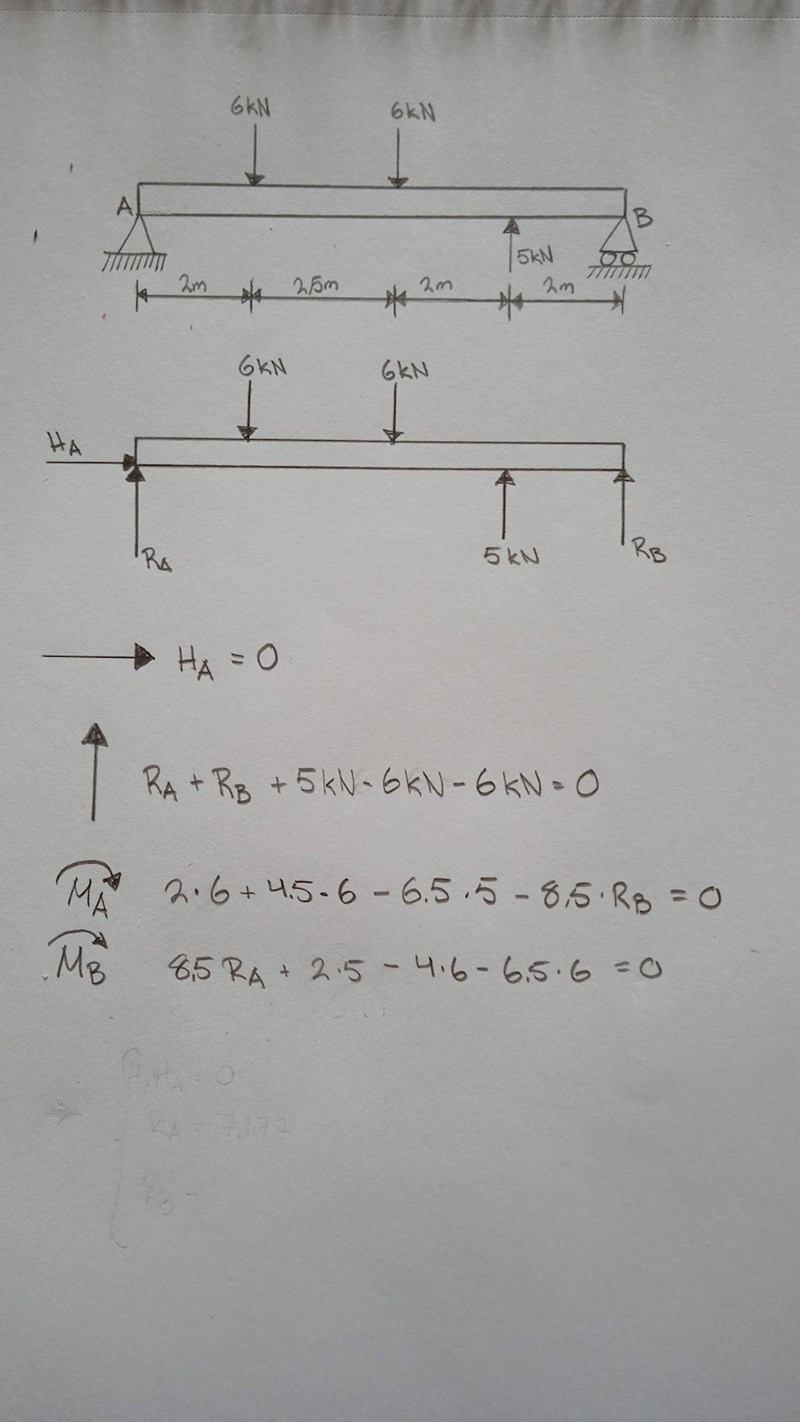 6kN 6kN
A B
5kN
2m 2,5m 2m 2m
6kN 6kN
HA
RA 5kN RB
HA = 0
RA + RB + 5kN - 6kN - 6kN = 0
MA 2·6 + 4.5·6 - 6.5·5 - 8,5·RB = 0
MB 8,5 RA + 2·5 - 4·6 - 6,5·6 = 0
= 0
RA = 7,177